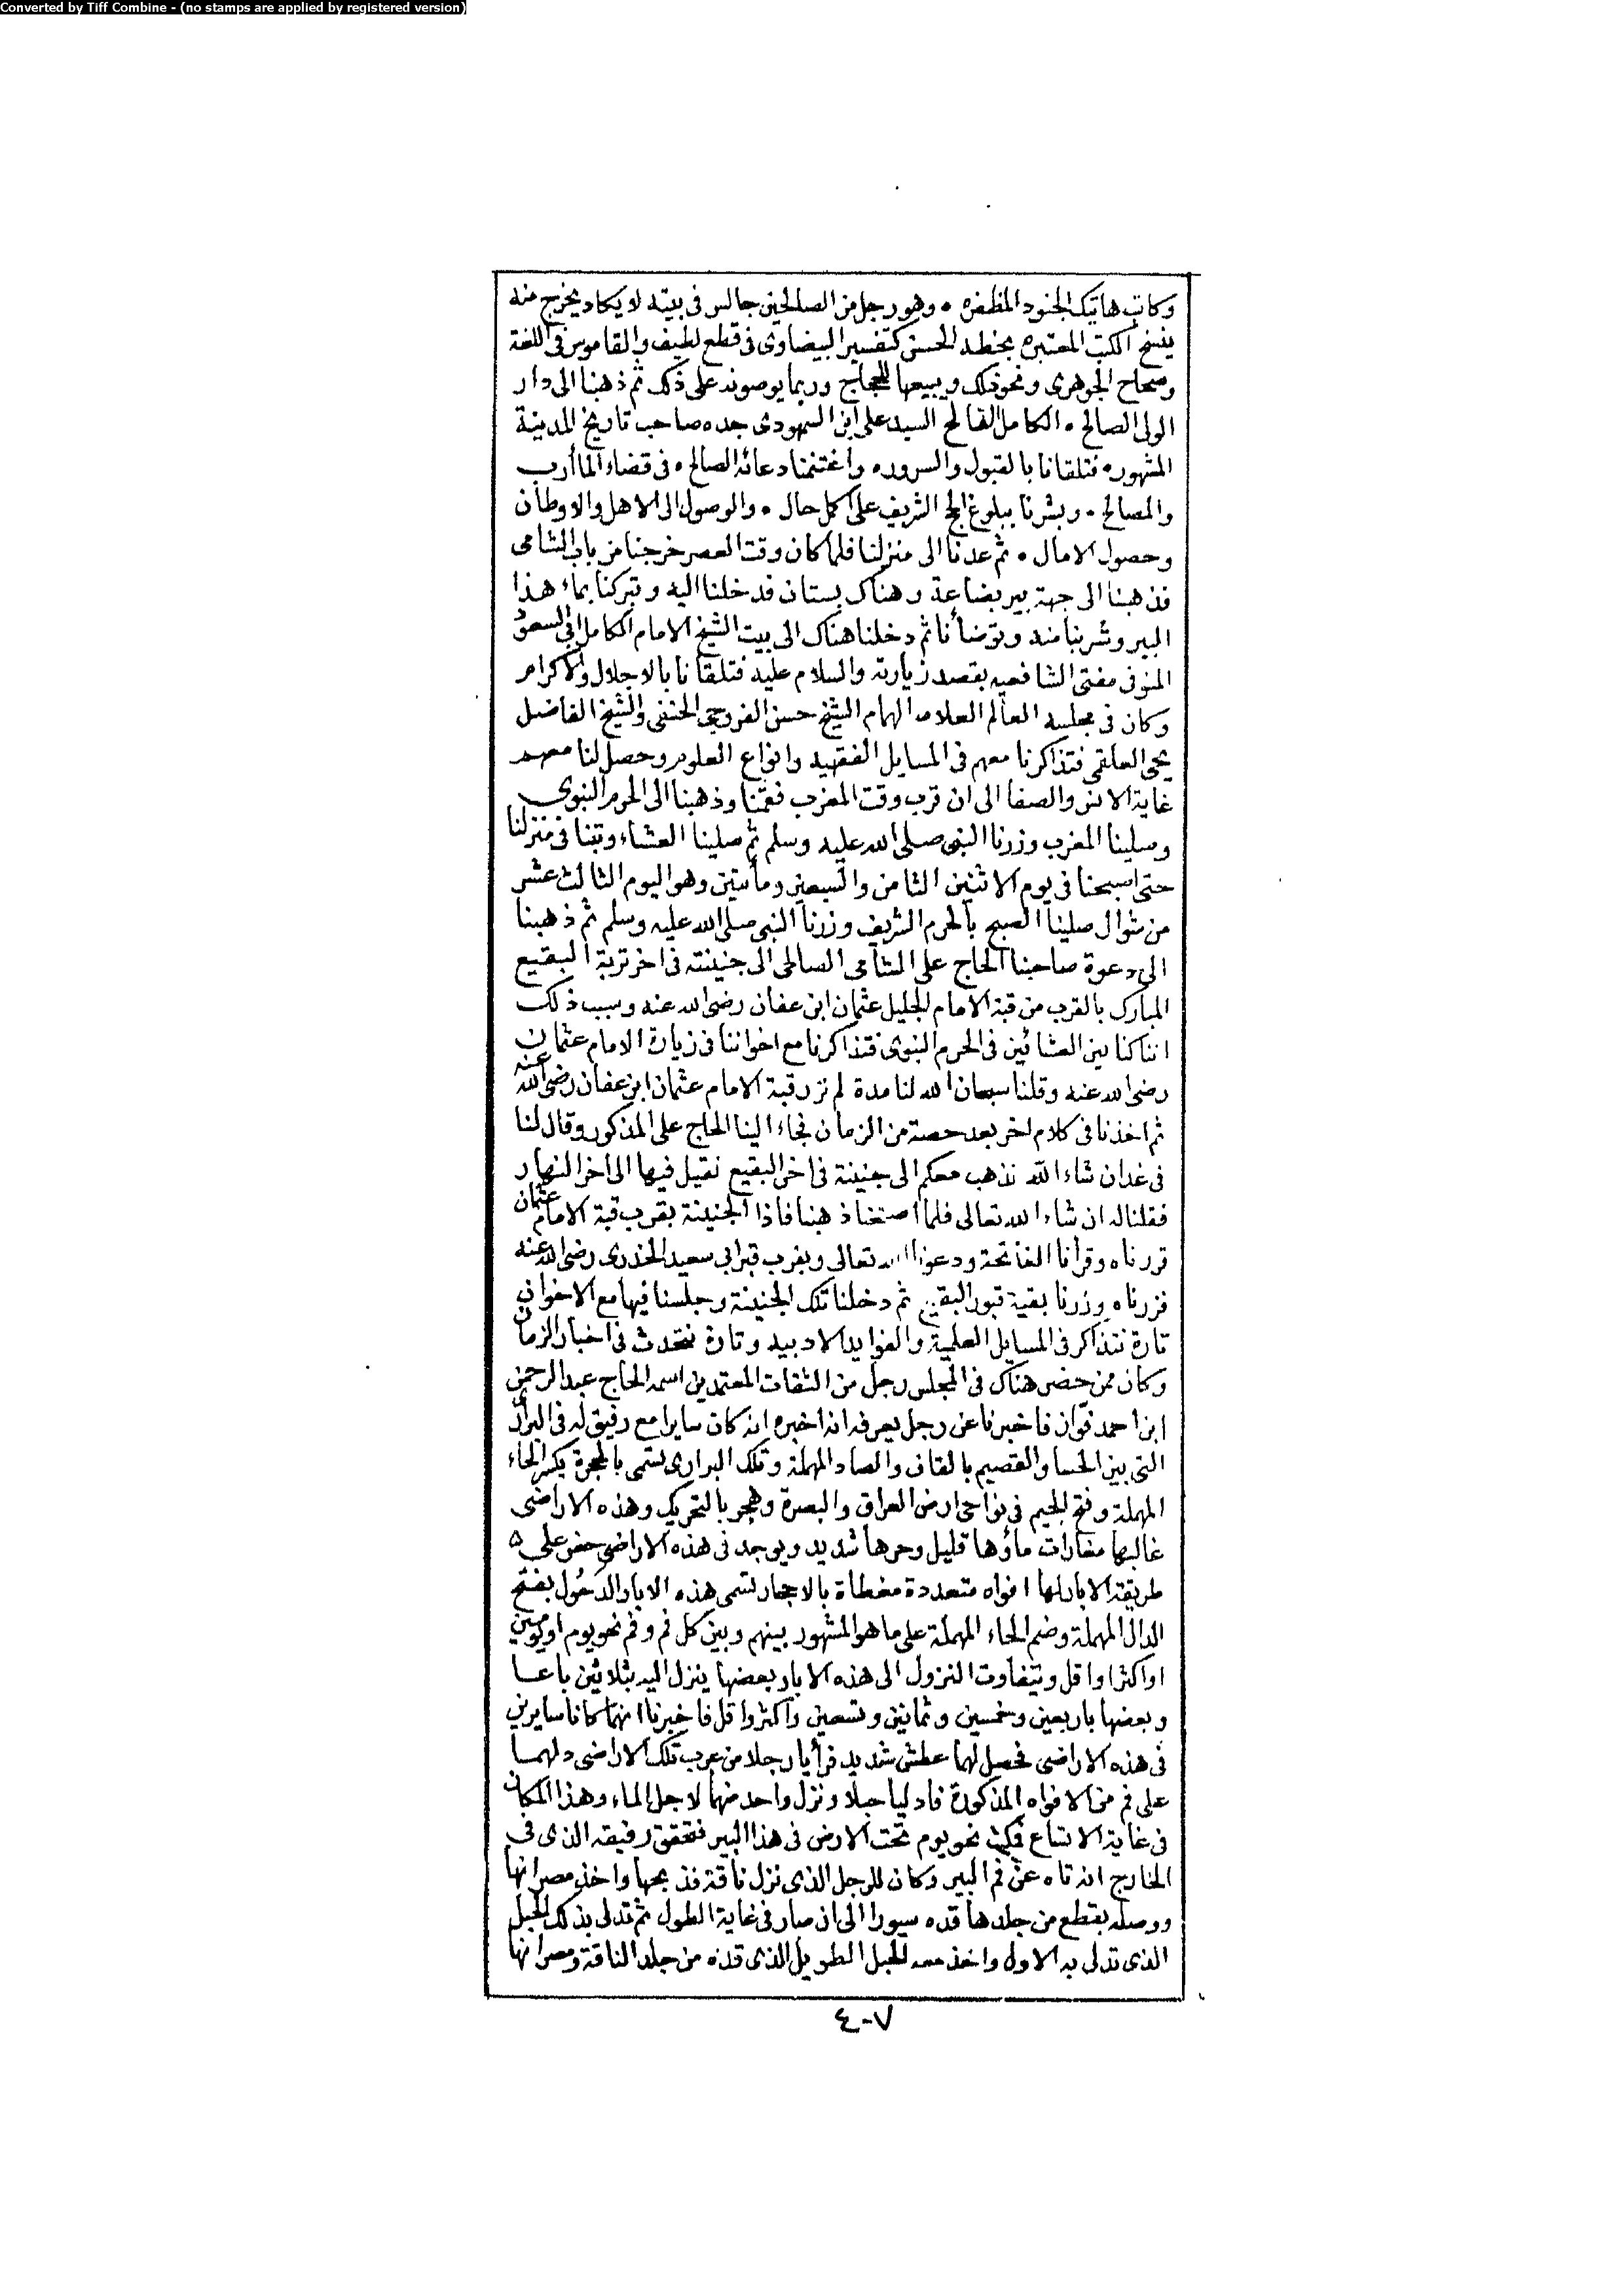 Converted by Tiff Combine - (no stamps are applied by registered version)
وكاتب هاتيك الجنود المظفره • وهو رجل من الصالحين جالس فى بيته لا يكاد يخرج منه
ينسخ الكتب المعتبره بخطه الحسن كتفسير البيضاوى فى قطع لطيف والقاموس فى اللغة
وصحاح الجوهرى ونحو ذلك ويبيعها للحجاج وربما يوصونه على ذلك ثم ذهبنا الى دار
الولى الصالح • الكامل الفالح السيد على ابن السمهودى جده صاحب تاريخ المدينة
المشهوره فتلقانا بالقبول والسرور • واغتنمنا دعائه الصالح • فى قضاء المأرب
والمصالح • وبشرنا ببلوغ الحج الشريف على اكمل حال • والوصول الى الاهل والاوطان
وحصول الامال • ثم عدنا الى منزلنا فلما كان وقت العصر خرجنا من باب الشامى
فذهبنا الى جهة بير بضاعة وهناك بستان فدخلنا اليه وتبركنا بماء هذا
البير وشربنا منه وتوضأنا ثم دخلنا هناك الى بيت الشيخ الامام الكامل ابى السعود
المنوفى مفتى الشافعيه بقصد زيارته والسلام عليه فتلقانا بالاجلال والاكرام
وكان فى مجلسه العالم العلامه الهمام الشيخ حسن الحنفى والشيخ الفاضل
يحيى العلقمى فتذاكرنا معهم فى المسايل الفقهيه وانواع العلوم وحصل لنا معهم
غاية الانس والصفا الى ان قرب وقت المغرب فقمنا وذهبنا الى الحرم النبوى
وصلينا المغرب وزرنا النبى صلى الله عليه وسلم ثم صلينا العشاء وبتنا فى منزلنا
حتى اصبحنا فى يوم الاثنين الثامن والسبعين ومأتين وهو اليوم الثالث عشر
من شوال صلينا الصبح بالحرم الشريف وزرنا النبى صلى الله عليه وسلم ثم ذهبنا
الى دعوة صاحبنا الحاج على الشامى الصالحى الى جنينته فى اخر تربة البقيع
المبارك بالقرب من قبة الامام الجليل عثمان ابن عفان رضى الله عنه وسبب ذلك
اننا كنا بين العشائين فى الحرم النبوى فتذاكرنا مع اخواننا فى زيارة الامام عثمان
رضى الله عنه وقلنا سبحان الله لنا مدة لم نزر قبة الامام عثمان ابن عفان رضى الله عنه
ثم اخذنا فى كلام اخر بعد حصة من الزمان فجاء الينا الحاج على المذكور وقال لنا
فى غد ان شاء الله نذهب معكم الى جنينة فى اخر البقيع نقيل فيها الى اخر النهار
فقلنا له ان شاء الله تعالى فلما اصبحنا ذهبنا فاذا الجنينة بقرب قبة الامام عثمان
فزرناه وقرأنا الفاتحة ودعونا الله تعالى وبقرب قبر ابى سعيد الخدرى رضى الله عنه
فزرناه وزرنا بقية قبور البقيع ثم دخلنا تلك الجنينة وجلسنا فيها مع الاخوان
تارة نتذاكر فى المسايل العلمية والفوايد الادبيه وتارة نتحدث فى اخبار الزمان
وكان ممن حضر هناك فى المجلس رجل من الثقات المعتمدين اسمه الحاج عبد الرحمن
ابن احمد فاخبرنا عن رجل يعرفه انه اخبره انه كان سايرا مع رفيق له فى البرارى
التى بين الحسا والقصيم بالقاف والصاد المهملة وتلك البرارى تسمى بالحجرة بكسر الحاء
المهملة وفتح الجيم فى نواحى ارض العراق والبصرة وهجر بالتحريك وهذه الاراضى
غالبها مفازات ماؤها قليل وحرها شديد ويوجد فى هذه الاراضى حفر على
طريقة الابار لها افواه متعددة مغطاة بالاحجار تسمى هذه الابار الدحول بفتح
الدال المهملة وضم الحاء المهملة على ما هو المشهور بينهم وبين كل فم وفم نحو يوم او يومين
او اكثر او اقل ويتفاوت النزول الى هذه الابار بعضها ينزل اليه بثلاثين باعا
وبعضها باربعين وخمسين وثمانين وتسعين واكثر واقل فاخبرنا انهما كانا سايرين
فى هذه الاراضى فحصل لهما عطش شديد فرأيا رجلا من عرب تلك الاراضى دلهما
على فم من الافواه المذكورة فادليا حبلا ونزل واحد منهما لاجل الماء وهذا المكان
فى غاية الاتساع فمكث نحو يوم تحت الارض فى هذا البير فتحقق رفيقه الذى فى
الخارج انه تاه عن فم البير وكان للرجل الذى نزل ناقة فذبحها واخذ مصرانها
ووصله بقطع من جلدها قده سيورا الى ان صار فى غاية الطول ثم تدلى بذلك الحبل
الذى تدلى به الاول واخذ معه الحبل الطويل الذى قده من جلد الناقة ومصرانها
٤٠٧